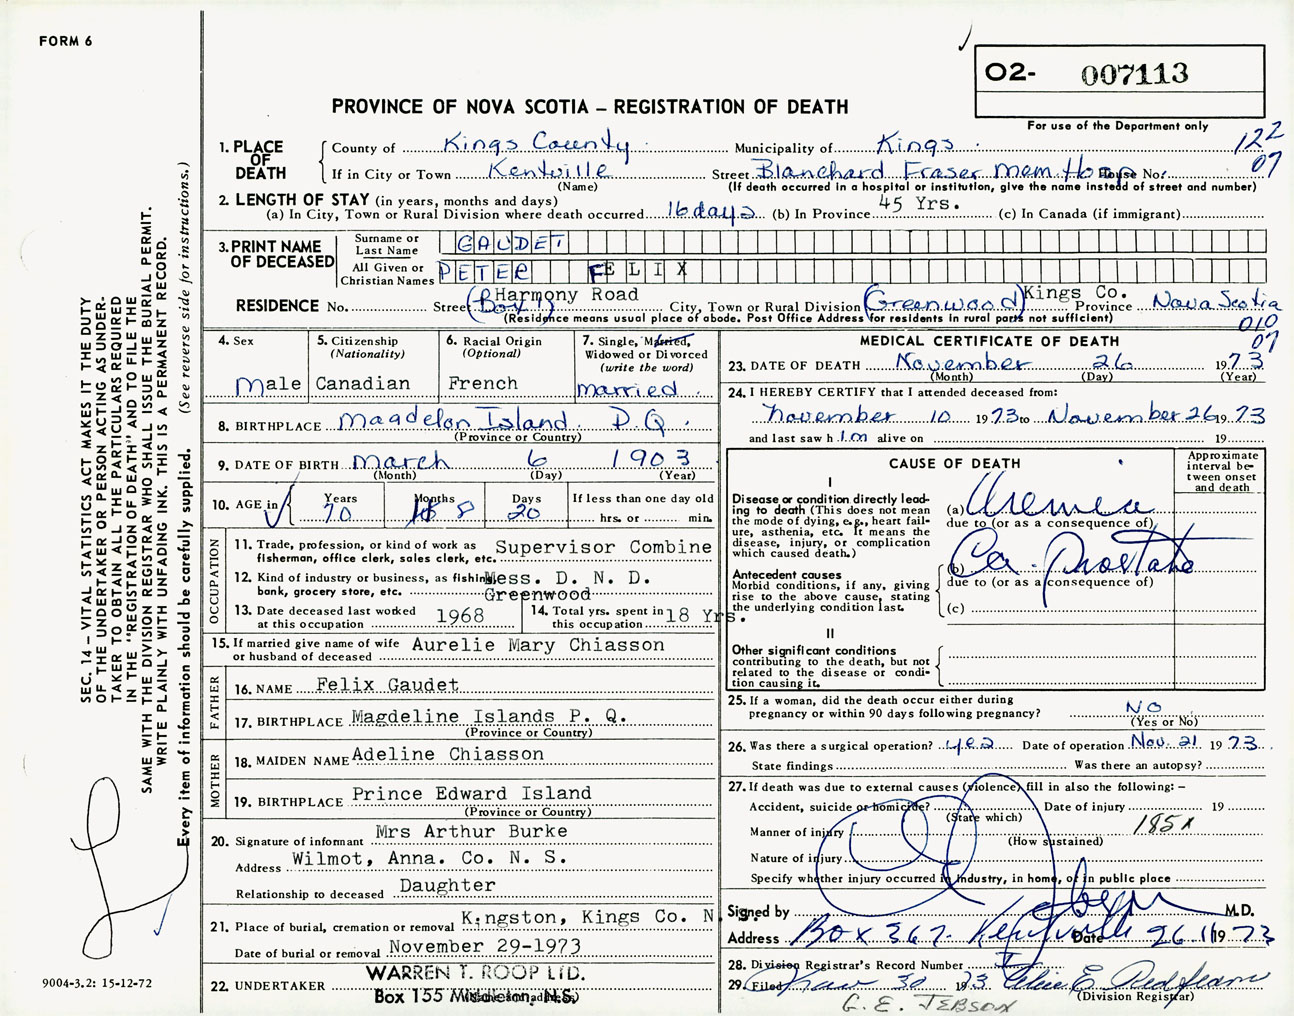 FORM 6
O2- 007113
PROVINCE OF NOVA SCOTIA — REGISTRATION OF DEATH
For use of the Department only
122
07
1. PLACE OF DEATH
County of Kings County Municipality of Kings
If in City or Town Kentville Street Blanchard Fraser Mem. Hosp House No.
(Name) (If death occurred in a hospital or institution, give the name instead of street and number)
2. LENGTH OF STAY (in years, months and days)
(a) In City, Town or Rural Division where death occurred 16 days (b) In Province 45 Yrs. (c) In Canada (if immigrant)
3. PRINT NAME OF DECEASED
Surname or Last Name GAUDET
All Given or Christian Names PETER FELIX
RESIDENCE No. Street (Box 1) Harmony Road City, Town or Rural Division (Greenwood) Kings Co. Province Nova Scotia
(Residence means usual place of abode. Post Office Address for residents in rural parts not sufficient)
010
07
4. Sex Male
5. Citizenship (Nationality) Canadian
6. Racial Origin (Optional) French
7. Single, Married, Widowed or Divorced (write the word) married
8. BIRTHPLACE Magdelon Island P.Q.
(Province or Country)
9. DATE OF BIRTH March 6 1903
(Month) (Day) (Year)
10. AGE in Years 70 Months 8 Days 20 If less than one day old
hrs. or min.
OCCUPATION
11. Trade, profession, or kind of work as fisherman, office clerk, sales clerk, etc. Supervisor Combine
12. Kind of industry or business, as fishing, bank, grocery store, etc. Mess. D. N. D.
Greenwood
13. Date deceased last worked at this occupation 1968
14. Total yrs. spent in this occupation 18 Yrs.
15. If married give name of wife or husband of deceased Aurelie Mary Chiasson
FATHER
16. NAME Felix Gaudet
17. BIRTHPLACE Magdeline Islands P. Q.
(Province or Country)
MOTHER
18. MAIDEN NAME Adeline Chiasson
19. BIRTHPLACE Prince Edward Island
(Province or Country)
20. Signature of informant Mrs Arthur Burke
Address Wilmot, Anna. Co. N. S.
Relationship to deceased Daughter
21. Place of burial, cremation or removal Kingston, Kings Co. N.S.
Date of burial or removal November 29-1973
22. UNDERTAKER WARREN T. ROOP LTD.
Box 155 Middleton, N.S.
(Name and address)
MEDICAL CERTIFICATE OF DEATH
23. DATE OF DEATH November 26 1973
(Month) (Day) (Year)
24. I HEREBY CERTIFY that I attended deceased from:
November 10 1973 to November 26 1973
and last saw him alive on 19
CAUSE OF DEATH
Approximate interval between onset and death
I
Disease or condition directly leading to death (This does not mean the mode of dying, e.g., heart failure, asthenia, etc. It means the disease, injury, or complication which caused death.)
(a) Uremia
due to (or as a consequence of)
Antecedent causes
Morbid conditions, if any, giving rise to the above cause, stating the underlying condition last.
(b) Ca. Prostate
due to (or as a consequence of)
(c)
II
Other significant conditions
contributing to the death, but not related to the disease or condition causing it.
25. If a woman, did the death occur either during pregnancy or within 90 days following pregnancy? NO
(Yes or No)
26. Was there a surgical operation? yes Date of operation Nov. 21 1973
State findings Was there an autopsy?
27. If death was due to external causes (violence) fill in also the following:—
Accident, suicide or homicide? Date of injury 19
(State which)
185x
Manner of injury
(How sustained)
Nature of injury
Specify whether injury occurred in industry, in home, or in public place
Signed by M.D.
Address Box 367. Kentville Date 26.11 1973
28. Division Registrar's Record Number
29. Filed 30 1973
(Division Registrar)
G. E. JEBSON
SEC. 14 — VITAL STATISTICS ACT MAKES IT THE DUTY
OF THE UNDERTAKER OR PERSON ACTING AS UNDER-
TAKER TO OBTAIN ALL THE PARTICULARS REQUIRED
IN THE "REGISTRATION OF DEATH" AND TO FILE THE
SAME WITH THE DIVISION REGISTRAR WHO SHALL ISSUE THE BURIAL PERMIT.
WRITE PLAINLY WITH UNFADING INK. THIS IS A PERMANENT RECORD.
Every item of information should be carefully supplied. (See reverse side for instructions.)
9004-3.2: 15-12-72